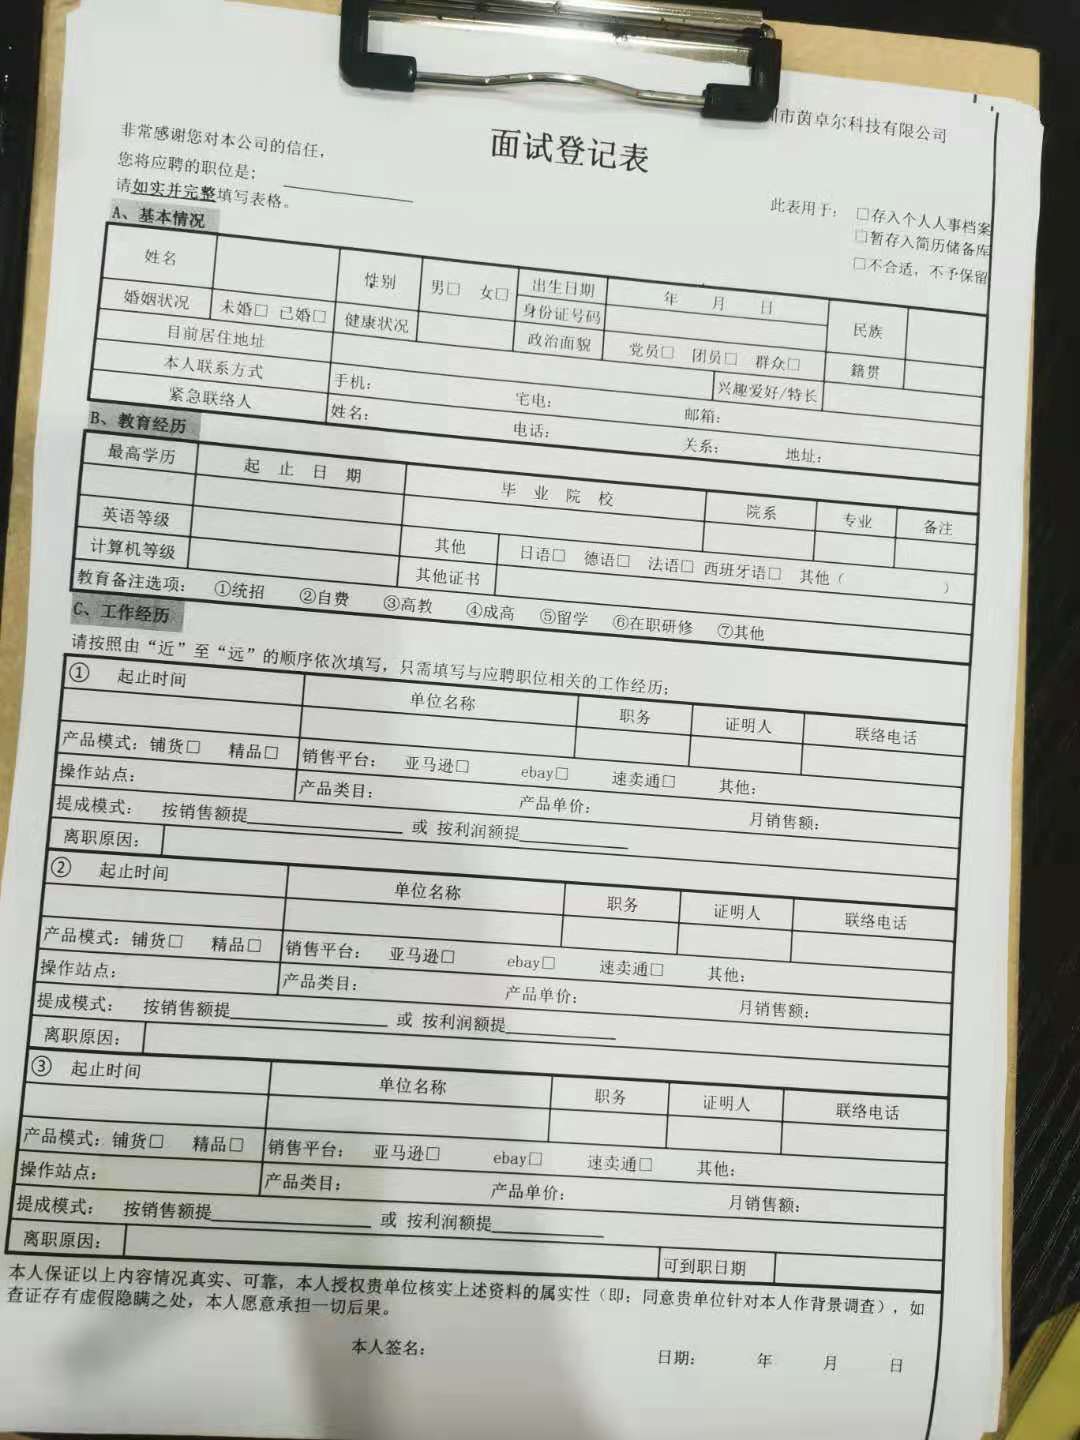 圳市茵卓尔科技有限公司
面试登记表
非常感谢您对本公司的信任，
您将应聘的职位是：
请如实并完整填写表格。
此表用于： □存入个人人事档案
□暂存入简历储备库
□不合适，不予保留
A、基本情况
姓名 性别 男□ 女□ 出生日期 年 月 日 民族
身份证号码
婚姻状况 未婚□ 已婚□ 健康状况 政治面貌 党员□ 团员□ 群众□ 籍贯
目前居住地址 兴趣爱好/特长
本人联系方式 手机： 宅电： 邮箱：
紧急联络人 姓名： 电话： 关系： 地址：
B、教育经历
最高学历 起 止 日 期 毕 业 院 校 院系 专业 备注
英语等级 其他 日语□ 德语□ 法语□ 西班牙语□ 其他（ ）
计算机等级 其他证书
教育备注选项： ①统招 ②自费 ③高教 ④成高 ⑤留学 ⑥在职研修 ⑦其他
C、工作经历
请按照由“近”至“远”的顺序依次填写，只需填写与应聘职位相关的工作经历；
① 起止时间 单位名称 职务 证明人 联络电话
产品模式：铺货□ 精品□ 销售平台： 亚马逊□ ebay□ 速卖通□ 其他：
操作站点： 产品类目： 产品单价： 月销售额：
提成模式： 按销售额提 或 按利润额提
离职原因：
② 起止时间 单位名称 职务 证明人 联络电话
产品模式：铺货□ 精品□ 销售平台： 亚马逊□ ebay□ 速卖通□ 其他：
操作站点： 产品类目： 产品单价： 月销售额：
提成模式： 按销售额提 或 按利润额提
离职原因：
③ 起止时间 单位名称 职务 证明人 联络电话
产品模式：铺货□ 精品□ 销售平台： 亚马逊□ ebay□ 速卖通□ 其他：
操作站点： 产品类目： 产品单价： 月销售额：
提成模式： 按销售额提 或 按利润额提
离职原因： 可到职日期
本人保证以上内容情况真实、可靠，本人授权贵单位核实上述资料的属实性（即：同意贵单位针对本人作背景调查），如
查证存有虚假隐瞒之处，本人愿意承担一切后果。
本人签名： 日期： 年 月 日